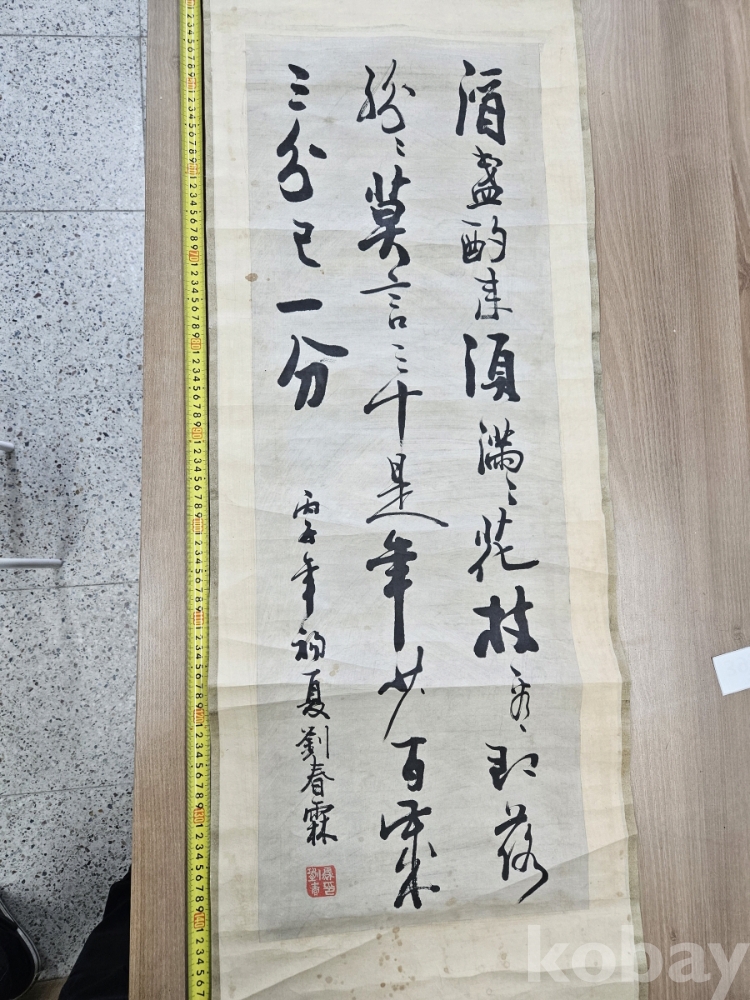 酒盞酌来須滿〻花枝看即落
紛〻莫言三十是年少百歲
三分已一分
丙子年初夏劉春霖
kobay